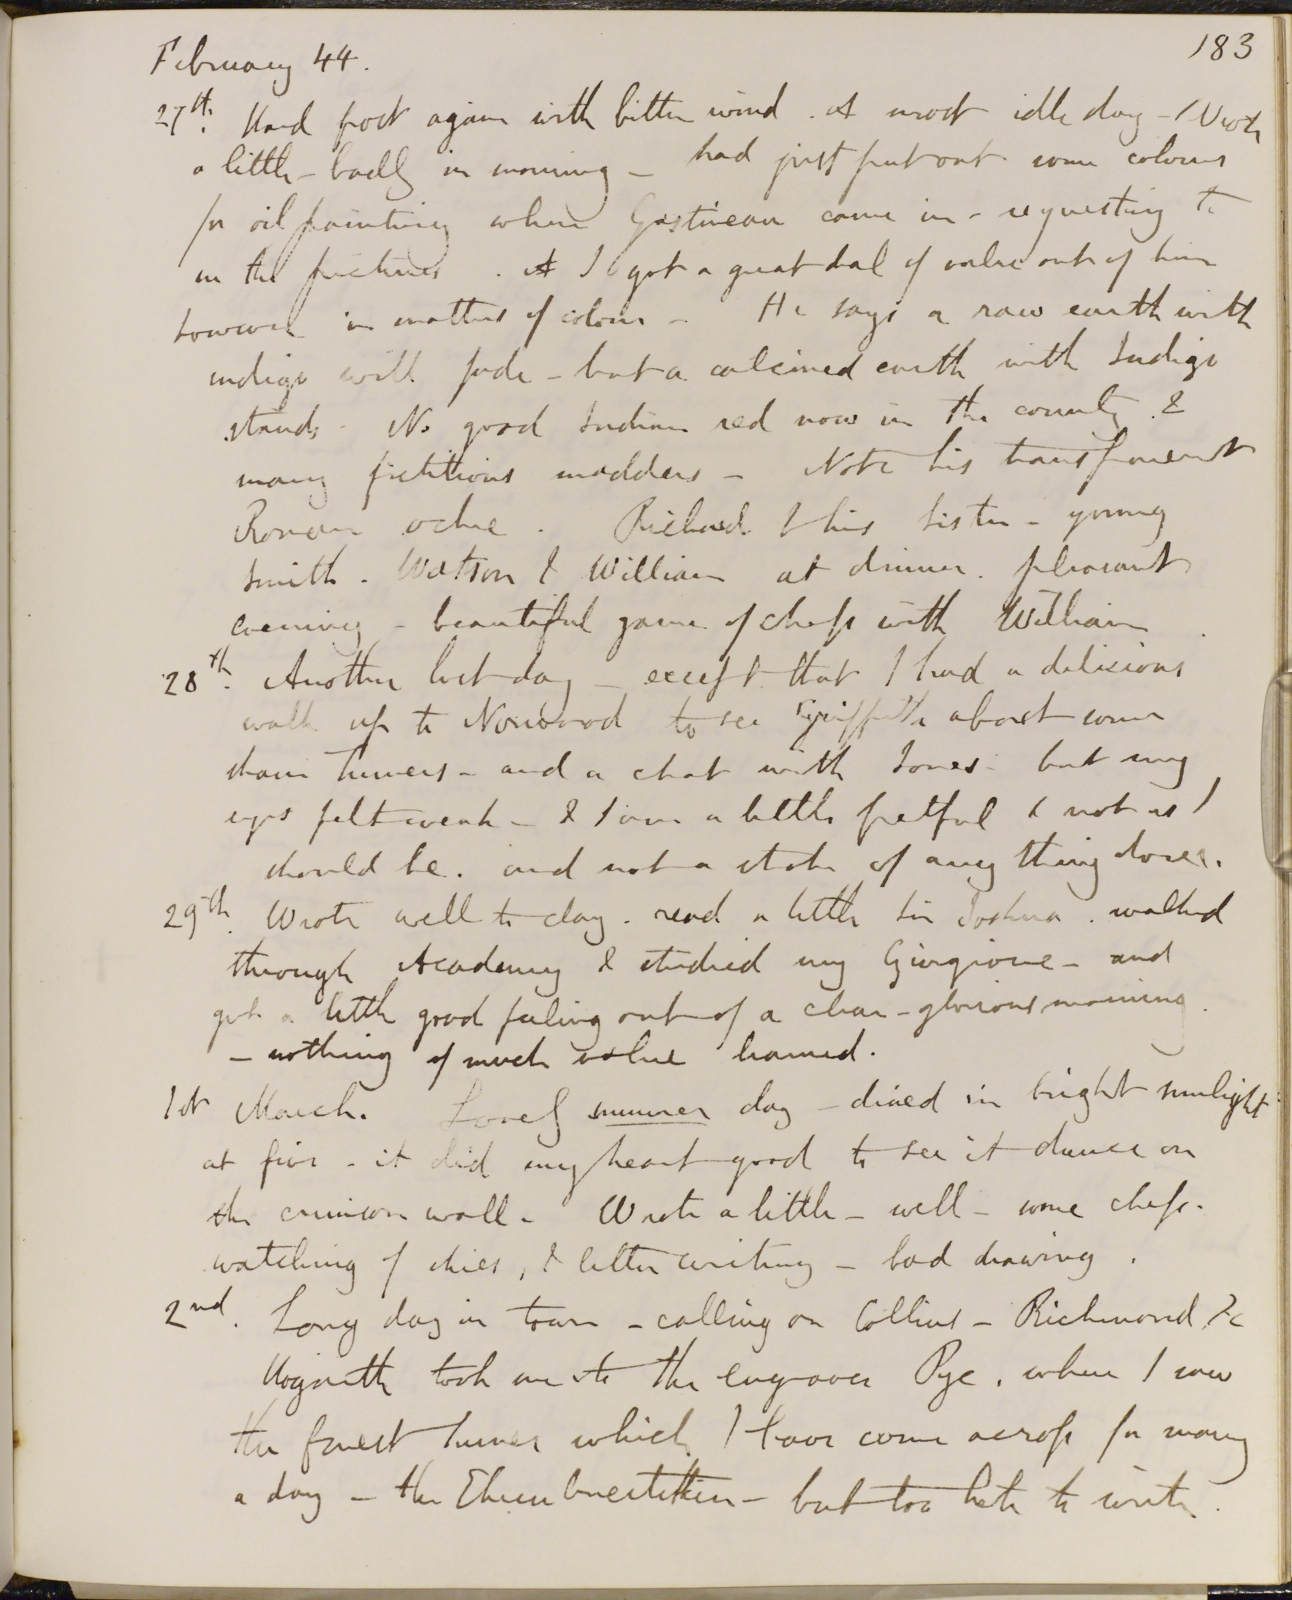 183
February 44.
27th. Hard frost again with bitter wind. A most idle day - Wrote
a little - badly in morning - had just put out some colours
for oil painting when Gastineau came in - requesting to
see the pictures. I got a great deal of value out of him
however in matters of colour - He says a raw earth with
indigo will fade - but a calcined earth with Indigo
stands. No good Indian red now in the country &
many fictitious madders - Note his transparent
Roman ochre. Richard & his sister - young
Smith. Watson & William at dinner. pleasant
evening - beautiful game of chess with William
28th. Another lost day - except that I had a delicious
walk up to Norwood to see Griffith about some
sham Turners - and a chat with Jones. but my
eyes felt weak - & I am a little fretful & not as I
should be. and not a stroke of any thing done.
29th. Wrote well to day. read a little Sir Joshua. walked
through Academy & studied my Giorgione - and
got a little good feeling out of a clear - glorious morning.
- nothing of much value learned.
1st March. Lovely summer day - dined in bright sunlight
at five - it did my heart good to see it dance on
the crimson wall. Wrote a little - well - some chess.
watching of skies, & letter writing - bad drawing.
2nd. Long day in town - calling on Collins - Richmond &c
Hogarth took me to the engraver Pye, where I saw
the finest Turner which I have come across for many
a day - the Ehrenbreitstein - but too late to write.